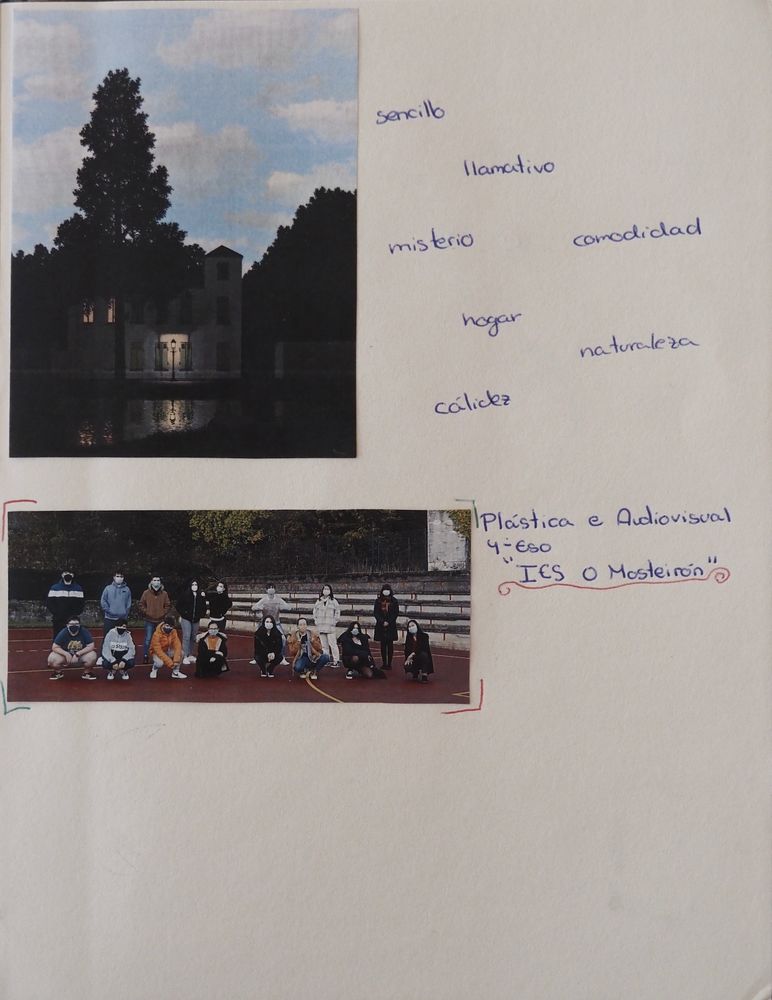 sencillo
llamativo
misterio
comodidad
hogar
naturaleza
cálidez
Plástica e Audiovisual
4º Eso
"IES O Mosteirón"